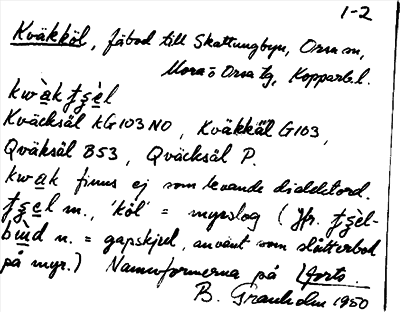 1-2
Kväkköl, fäbod till Skattungbyn, Orsa sn,
Mora o Orsa tg, Kopparb.l.
kwàk tʂèl
Kväcksål KG103 NO, Kväkkäl G103,
Qväksål B53, Qväcksål P.
kwak finns ej som levande dialektord.
tʂel m., 'köl' = myrslog (Jfr. tʂèl-
bud n. = gapskjul, använt som slåtterbod
på myr.) Namnformerna på (forts.
B. Granholm 1950